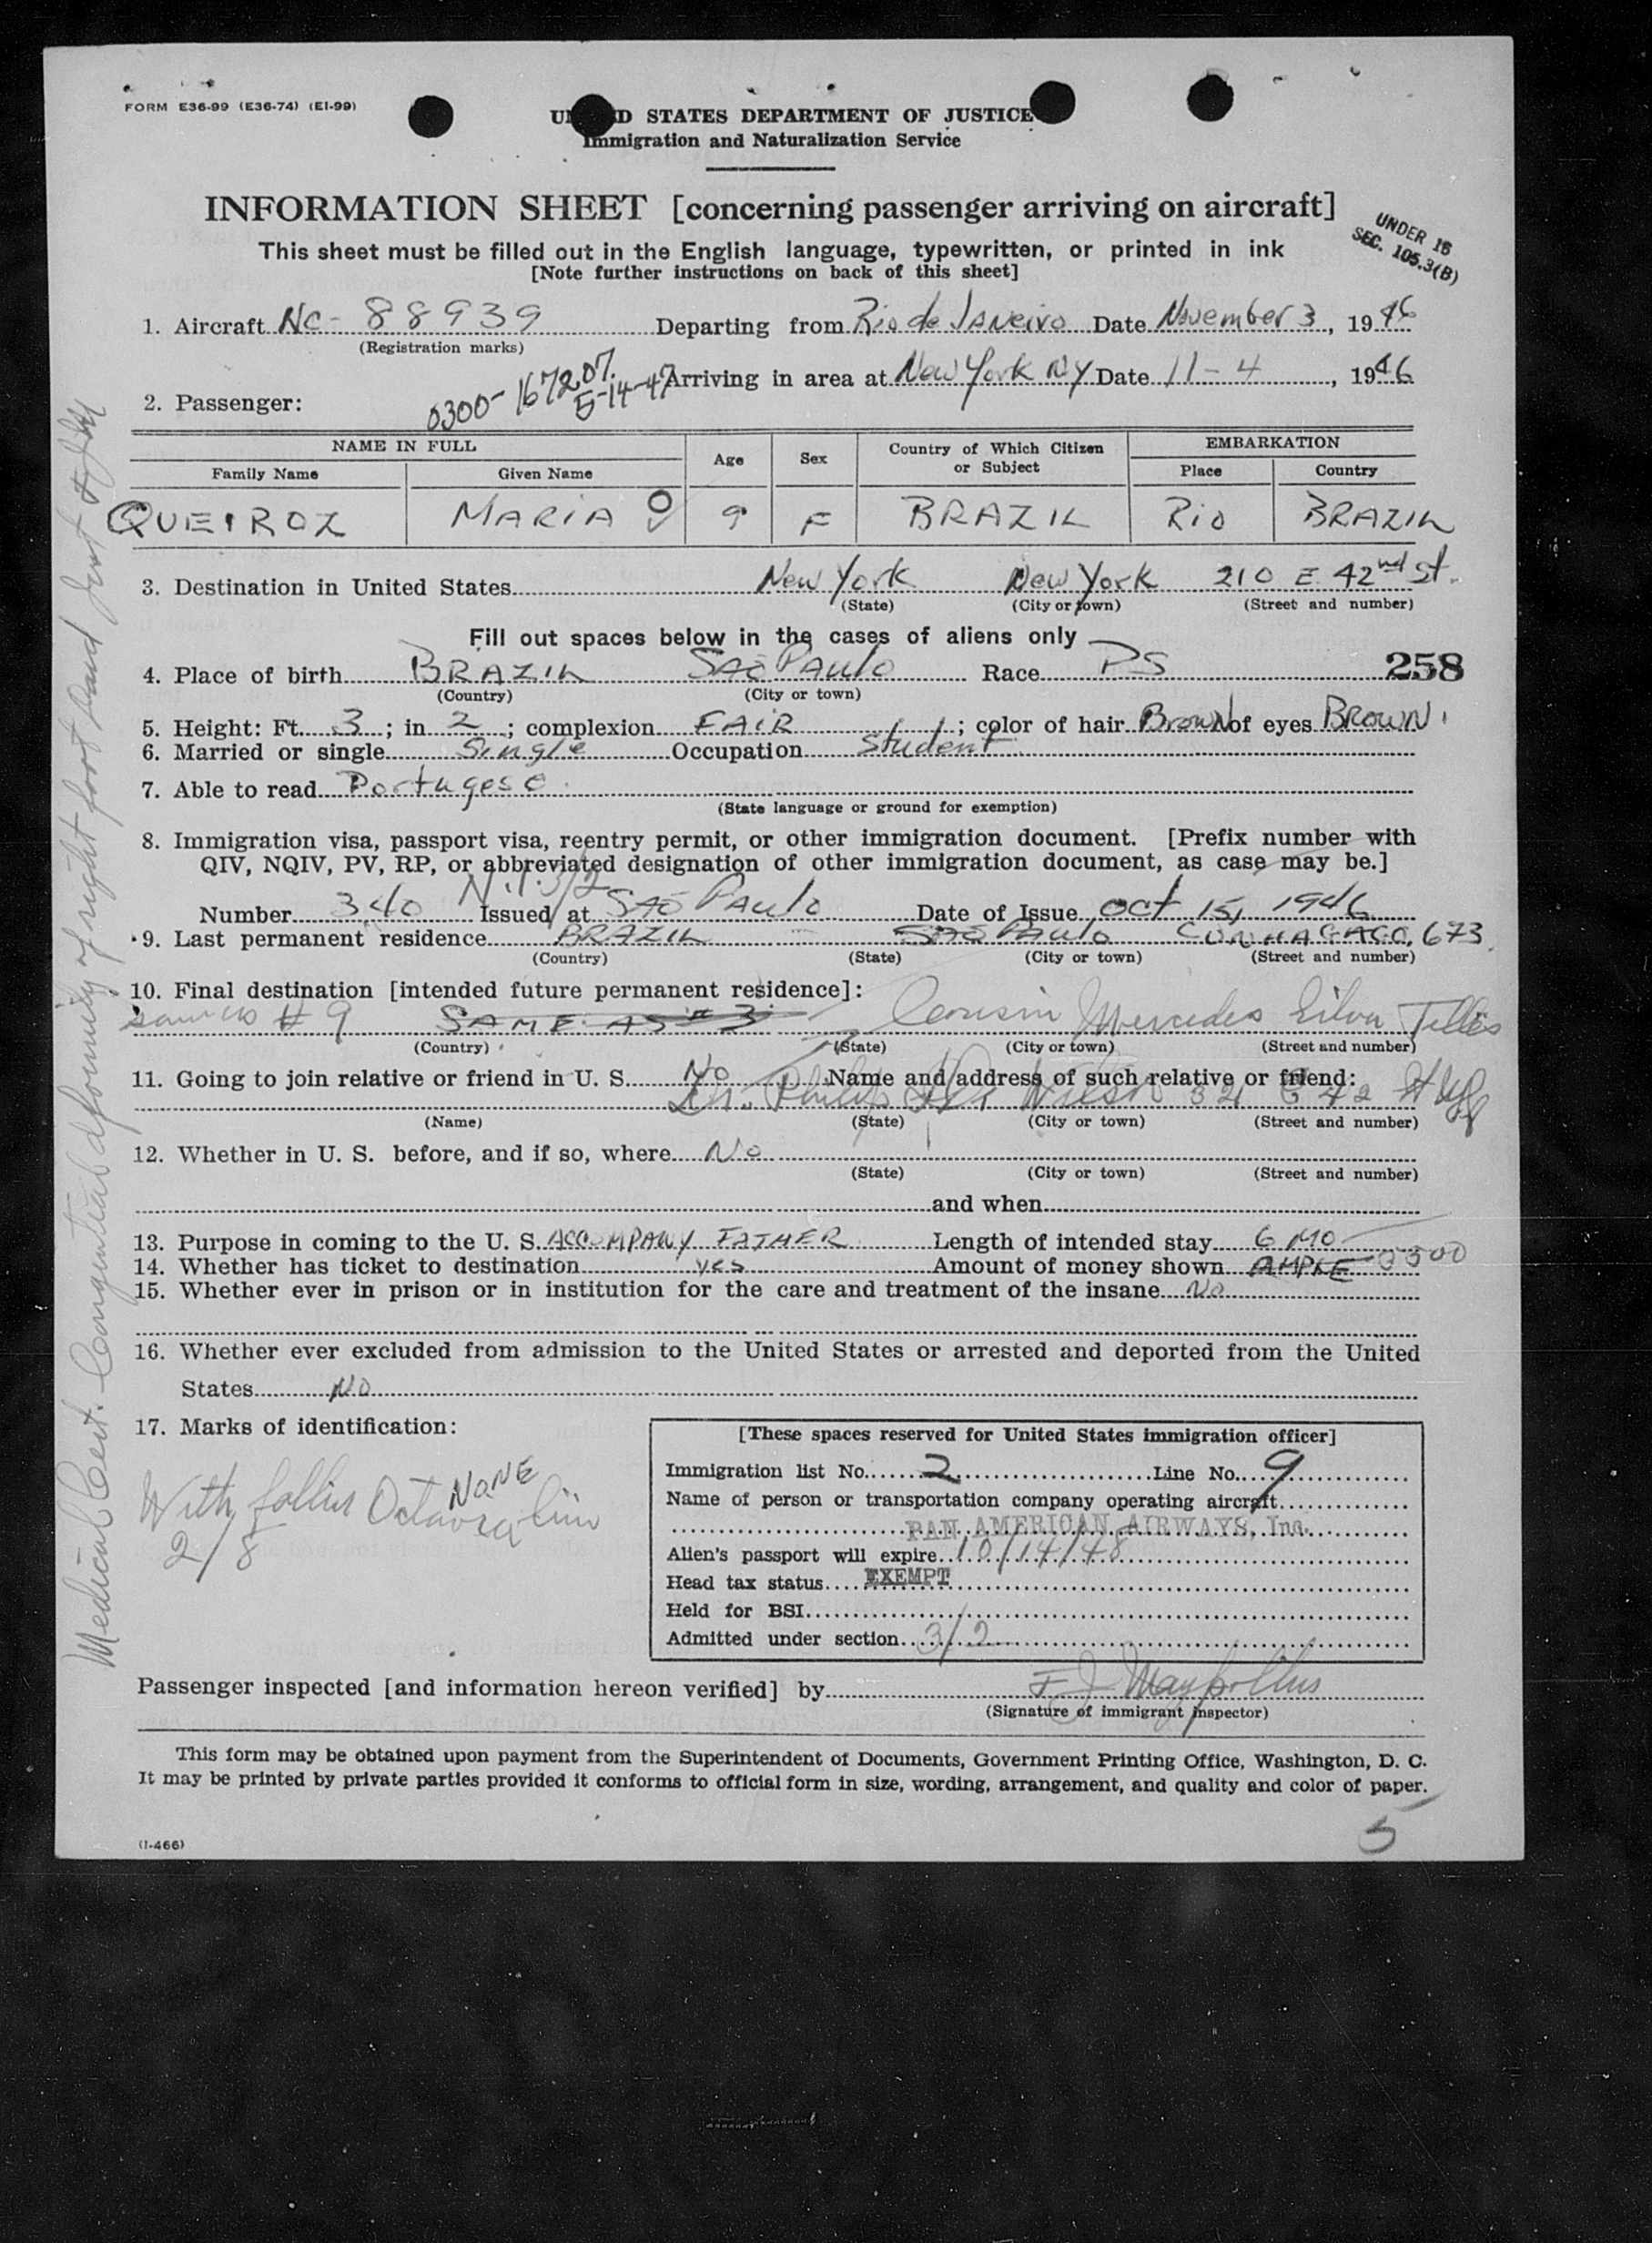 FORM E36-99 (E36-74) (EI-99)
UNITED STATES DEPARTMENT OF JUSTICE
Immigration and Naturalization Service
INFORMATION SHEET [concerning passenger arriving on aircraft]
UNDER 16
SEC. 105.3(B)
This sheet must be filled out in the English language, typewritten, or printed in ink
[Note further instructions on back of this sheet]
1. Aircraft NC-88939 Departing from Rio de Janeiro Date November 3, 1946
(Registration marks)
0300-167207
5-14-47
Arriving in area at New York NY Date 11-4, 1946
2. Passenger:
NAME IN FULL Age Sex Country of Which Citizen or Subject EMBARKATION
Family Name Given Name Place Country
QUEIROZ MARIA O 9 F BRAZIL Rio BRAZIL
3. Destination in United States New York New York 210 E. 42nd St.
(State) (City or town) (Street and number)
Fill out spaces below in the cases of aliens only
4. Place of birth BRAZIL SAO PAULO Race PS 258
(Country) (City or town)
5. Height: Ft. 3; in 2; complexion FAIR; color of hair Brown of eyes BROWN
6. Married or single Single Occupation student
7. Able to read Portugese
(State language or ground for exemption)
8. Immigration visa, passport visa, reentry permit, or other immigration document. [Prefix number with
QIV, NQIV, PV, RP, or abbreviated designation of other immigration document, as case may be.]
N.I. 3/2
Number 340 Issued at SAO PAULO Date of Issue Oct 15, 1946
9. Last permanent residence BRAZIL SAO PAULO 673
(Country) (State) (City or town) (Street and number)
10. Final destination [intended future permanent residence]:
same as #9 SAME AS #3 Cousin Mercedes Silva Telles
(Country) (State) (City or town) (Street and number)
11. Going to join relative or friend in U. S. No Name and address of such relative or friend:
Dr. Philip Wilson 321 E 42 St
(Name) (State) (City or town) (Street and number)
12. Whether in U. S. before, and if so, where No
(State) (City or town) (Street and number)
and when
13. Purpose in coming to the U. S. ACCOMPANY FATHER Length of intended stay 6 MO
14. Whether has ticket to destination yes Amount of money shown AMPLE
15. Whether ever in prison or in institution for the care and treatment of the insane No
16. Whether ever excluded from admission to the United States or arrested and deported from the United
States No
17. Marks of identification:
NONE
With father
2/8
[These spaces reserved for United States immigration officer]
Immigration list No. 2 Line No. 9
Name of person or transportation company operating aircraft
PAN AMERICAN AIRWAYS, Inc.
Alien's passport will expire 10/14/48
Head tax status EXEMPT
Held for BSI
Admitted under section 3/2
Passenger inspected [and information hereon verified] by F J
(Signature of immigrant inspector)
This form may be obtained upon payment from the Superintendent of Documents, Government Printing Office, Washington, D. C.
It may be printed by private parties provided it conforms to official form in size, wording, arrangement, and quality and color of paper.
(I-466)
5
Medical Cert. Congenital deformity of right foot and